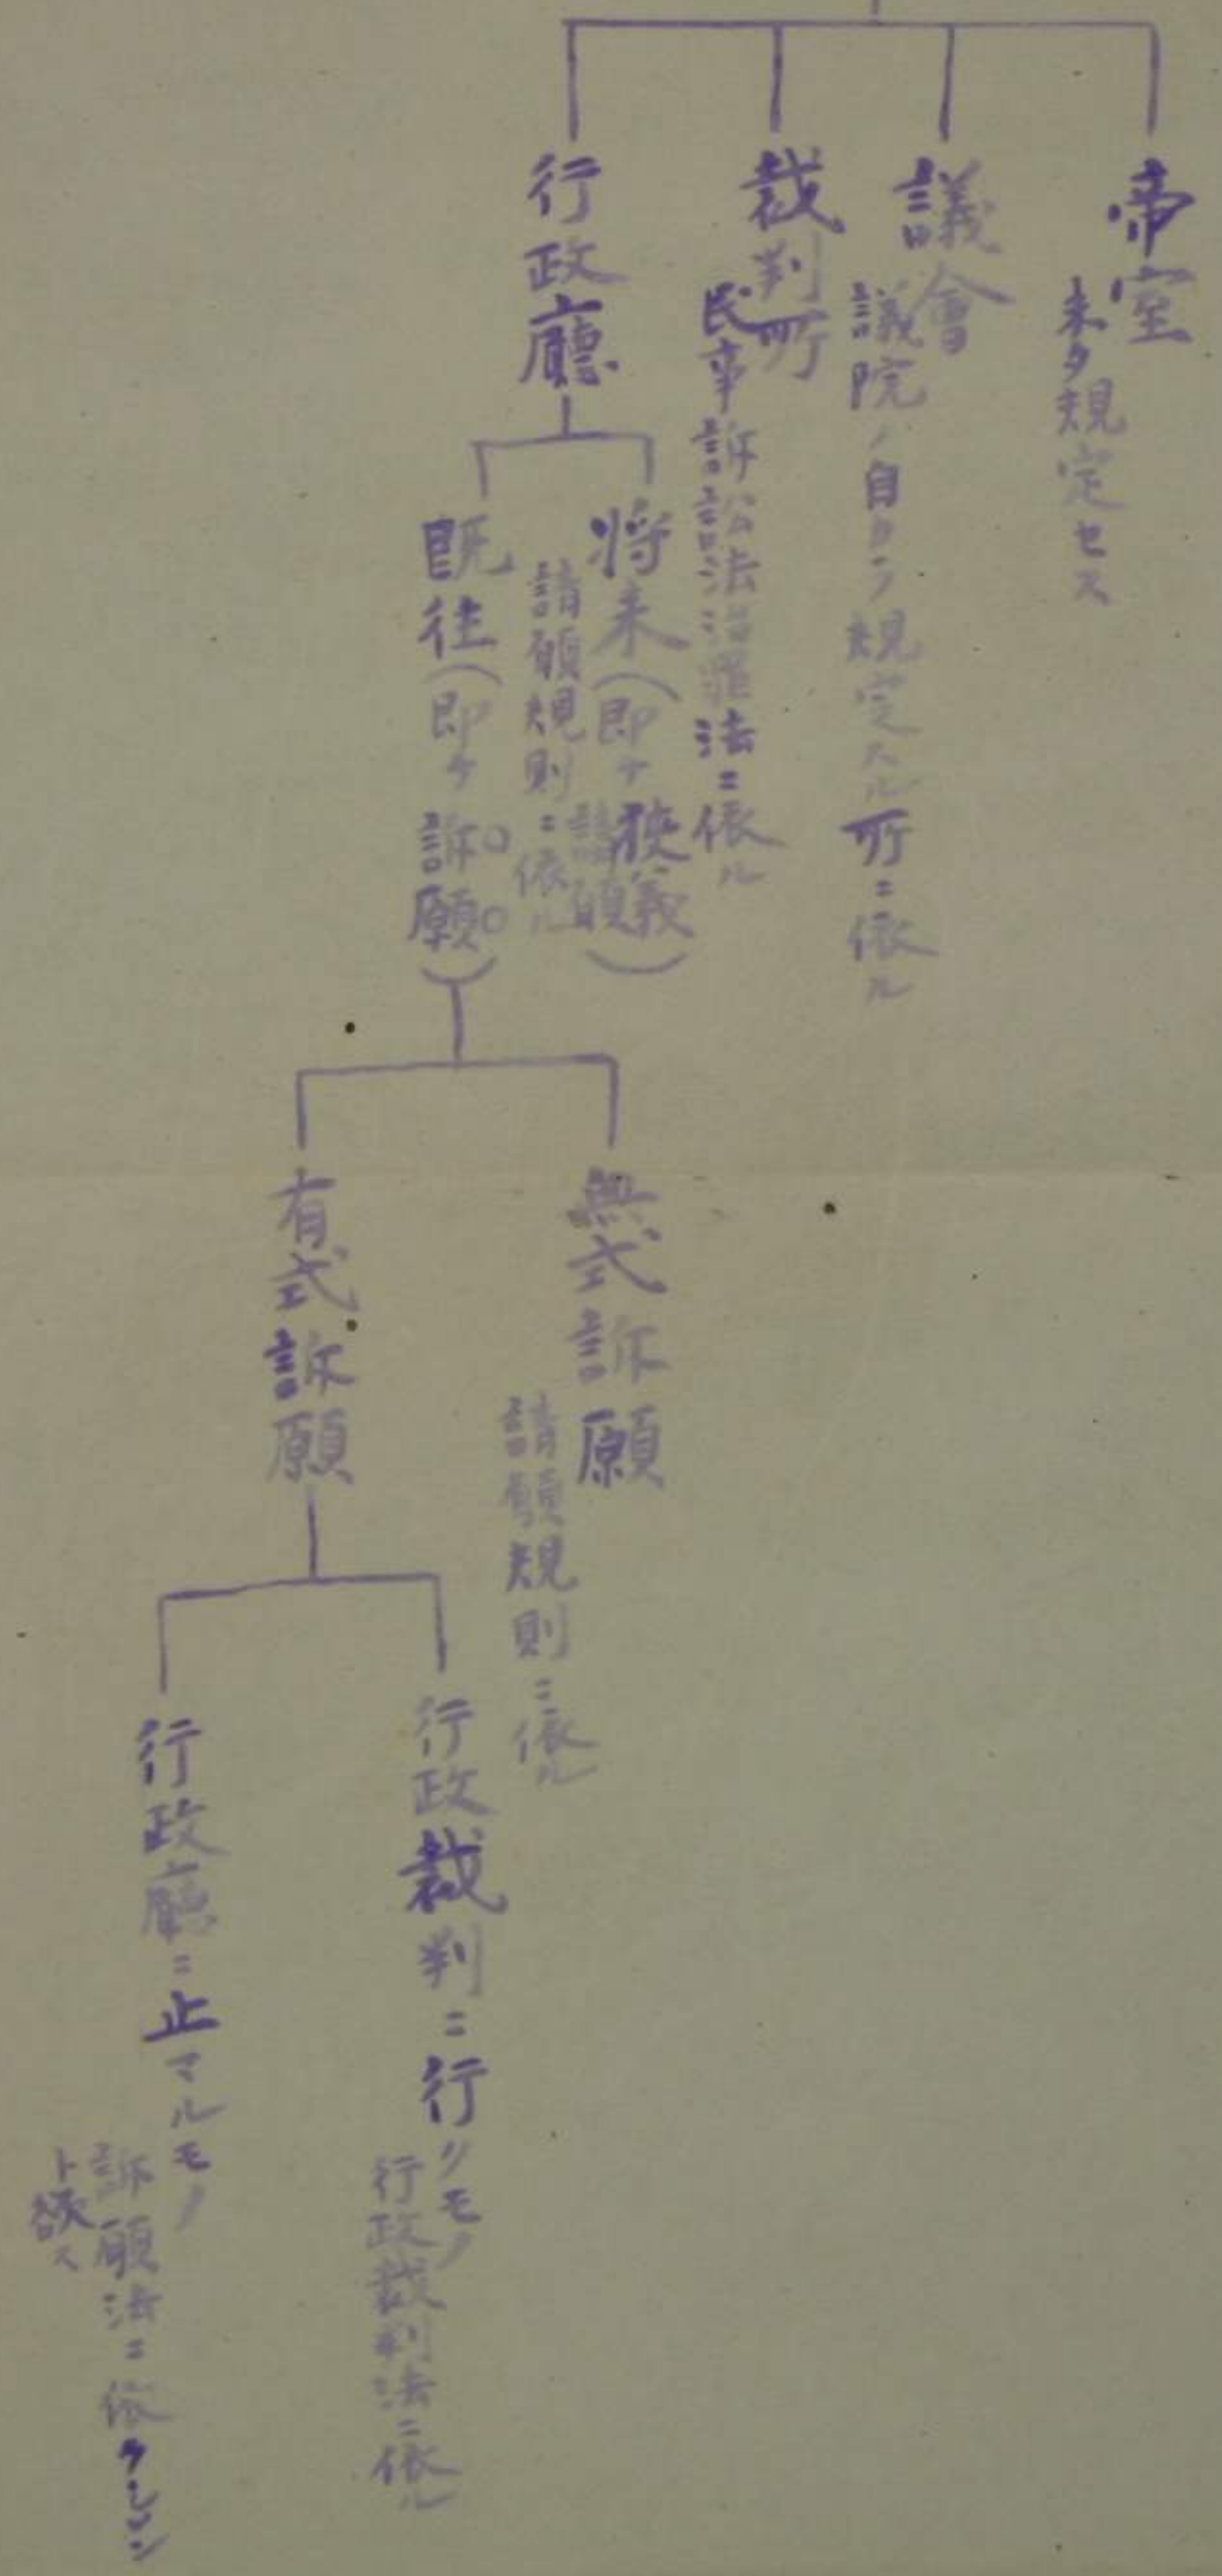 帝室
未タ規定セス
議會
議院ノ自カラ規定スル所ニ依ル
裁判所
民事訴訟法治罪法ニ依ル
行政廳
将来(即チ狭義請願)
請願規則ニ依ル
既往(即チ訴願)
無式訴願
請願規則ニ依ル
有式訴願
行政裁判ニ行クモノ
行政裁判法ニ依ル
行政廳ニ止マルモノ
訴願法ニ依ラシメン
ト欲ス